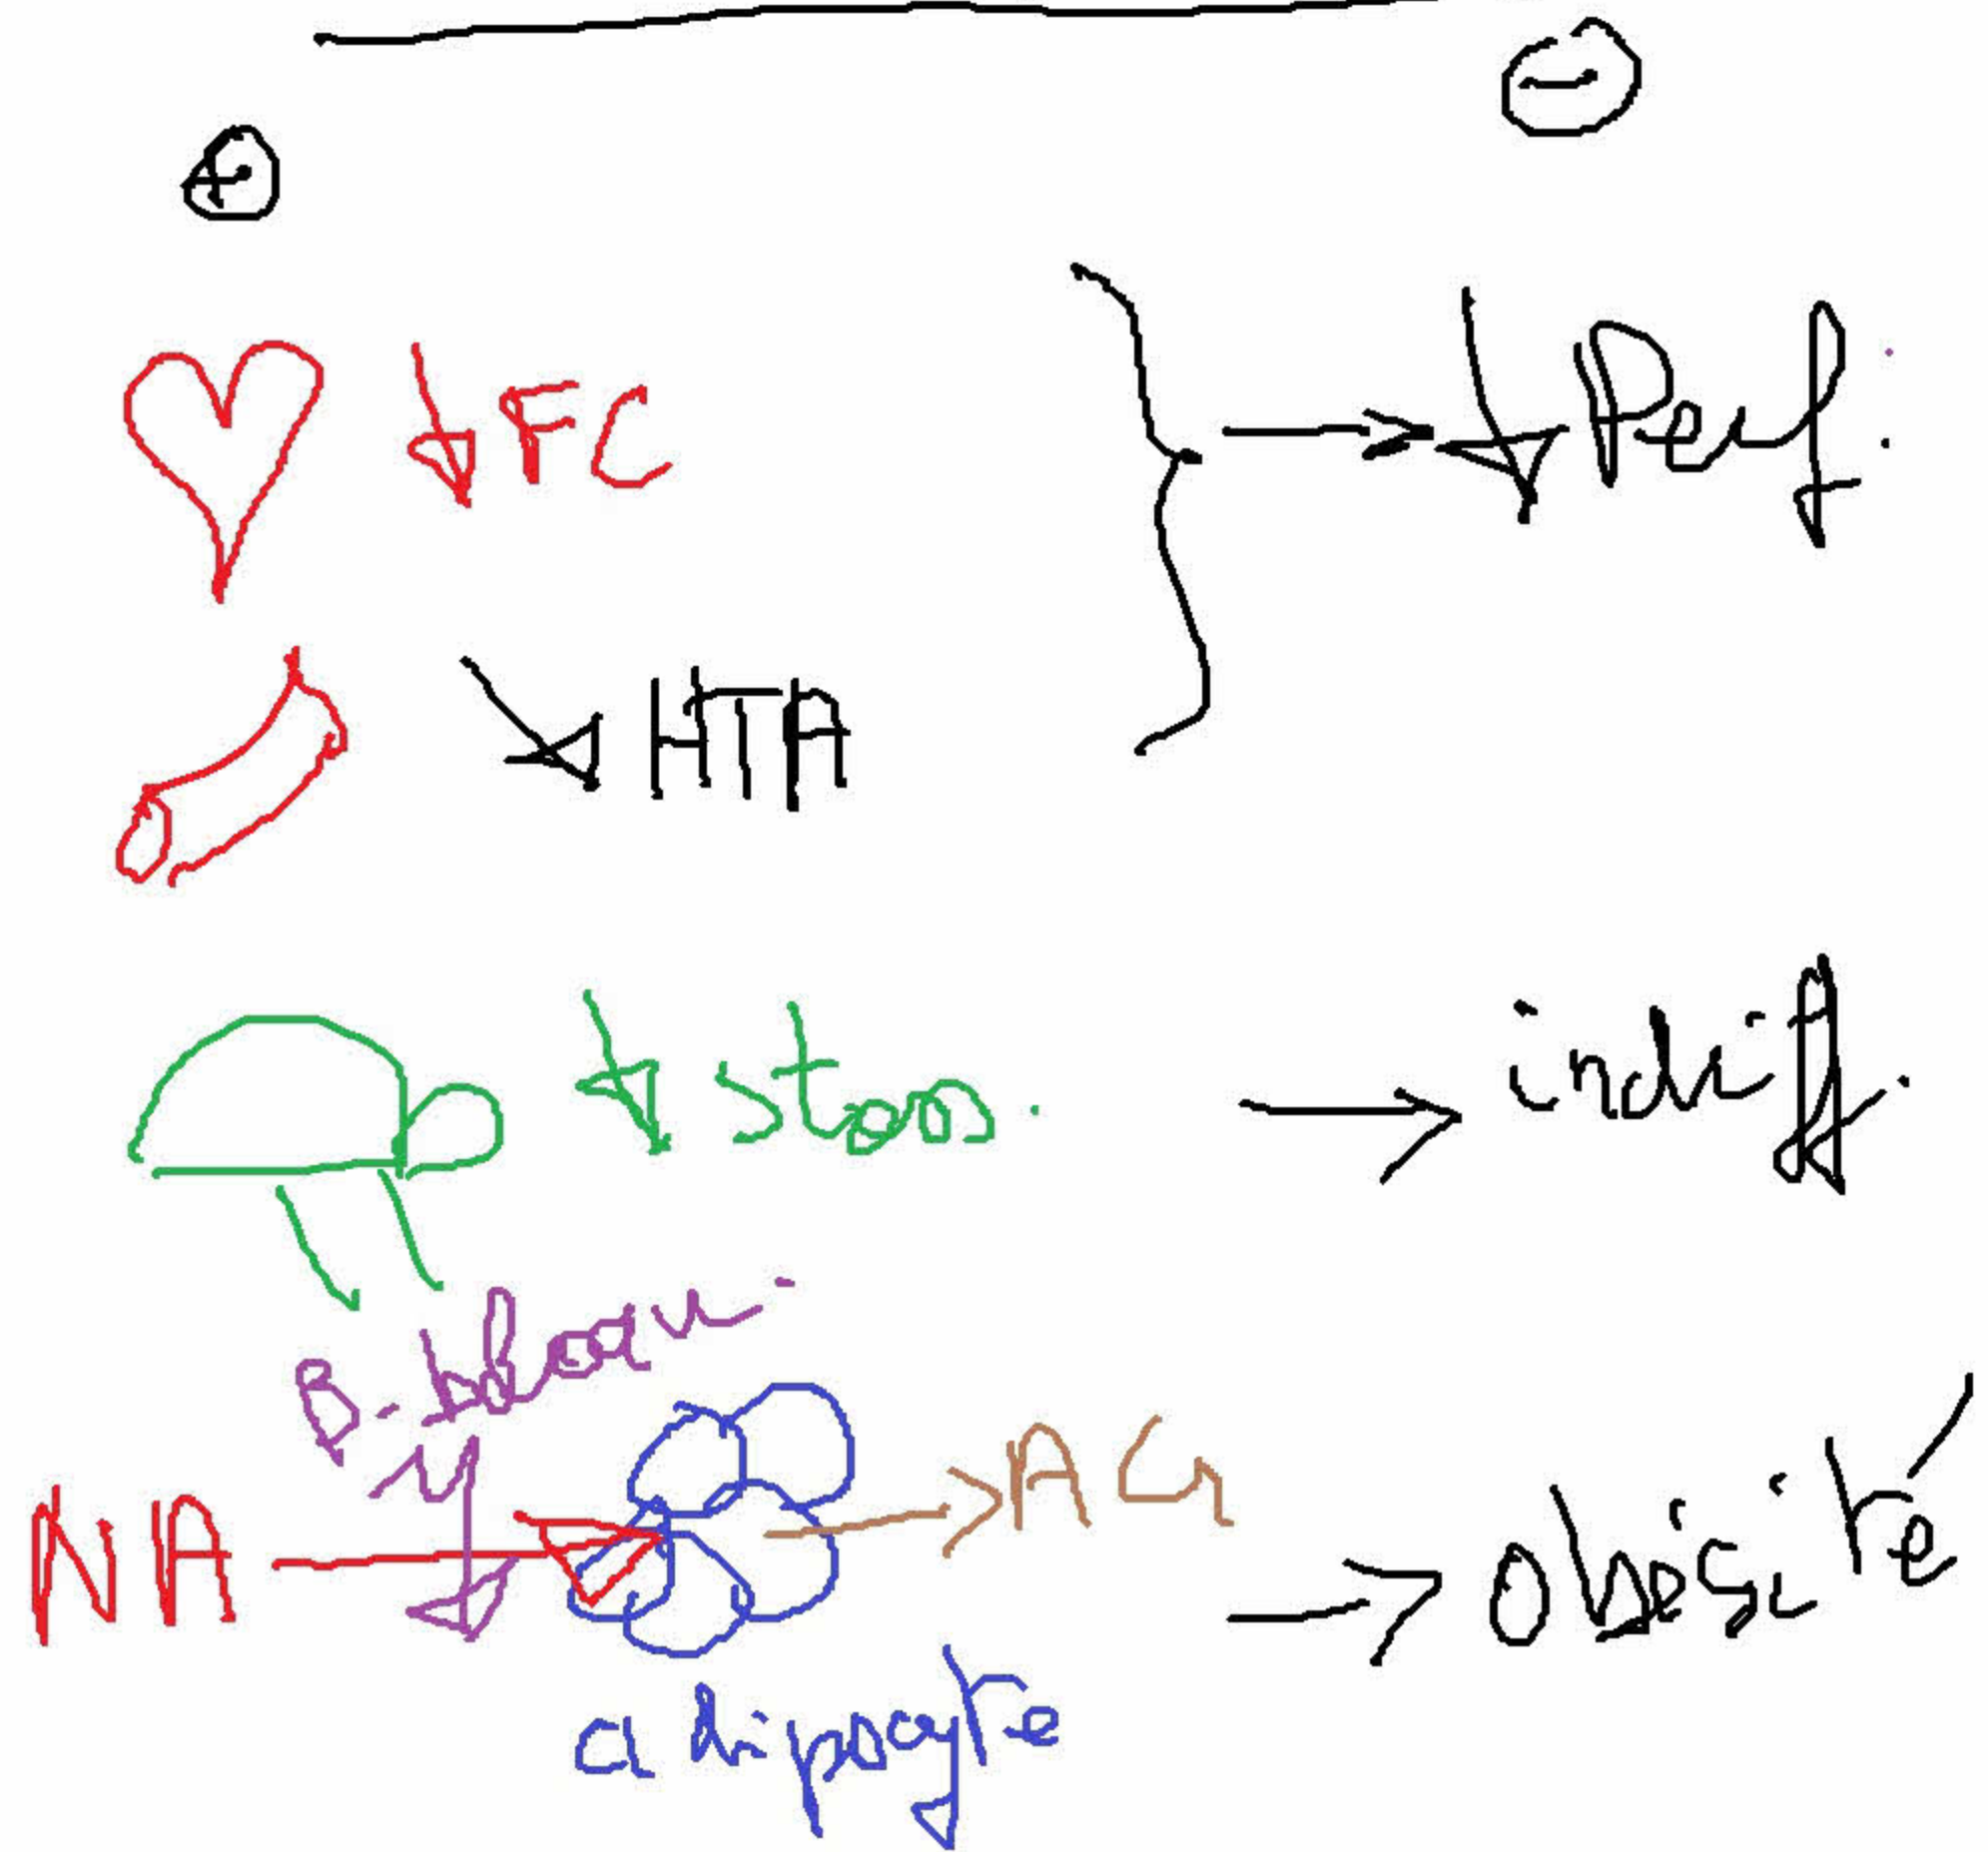 ↓ FC → ↓ Perf.
↘ HTA
↓ stress. → indiff.
B-bloqu.
NA → AG → obésité
adipocyte